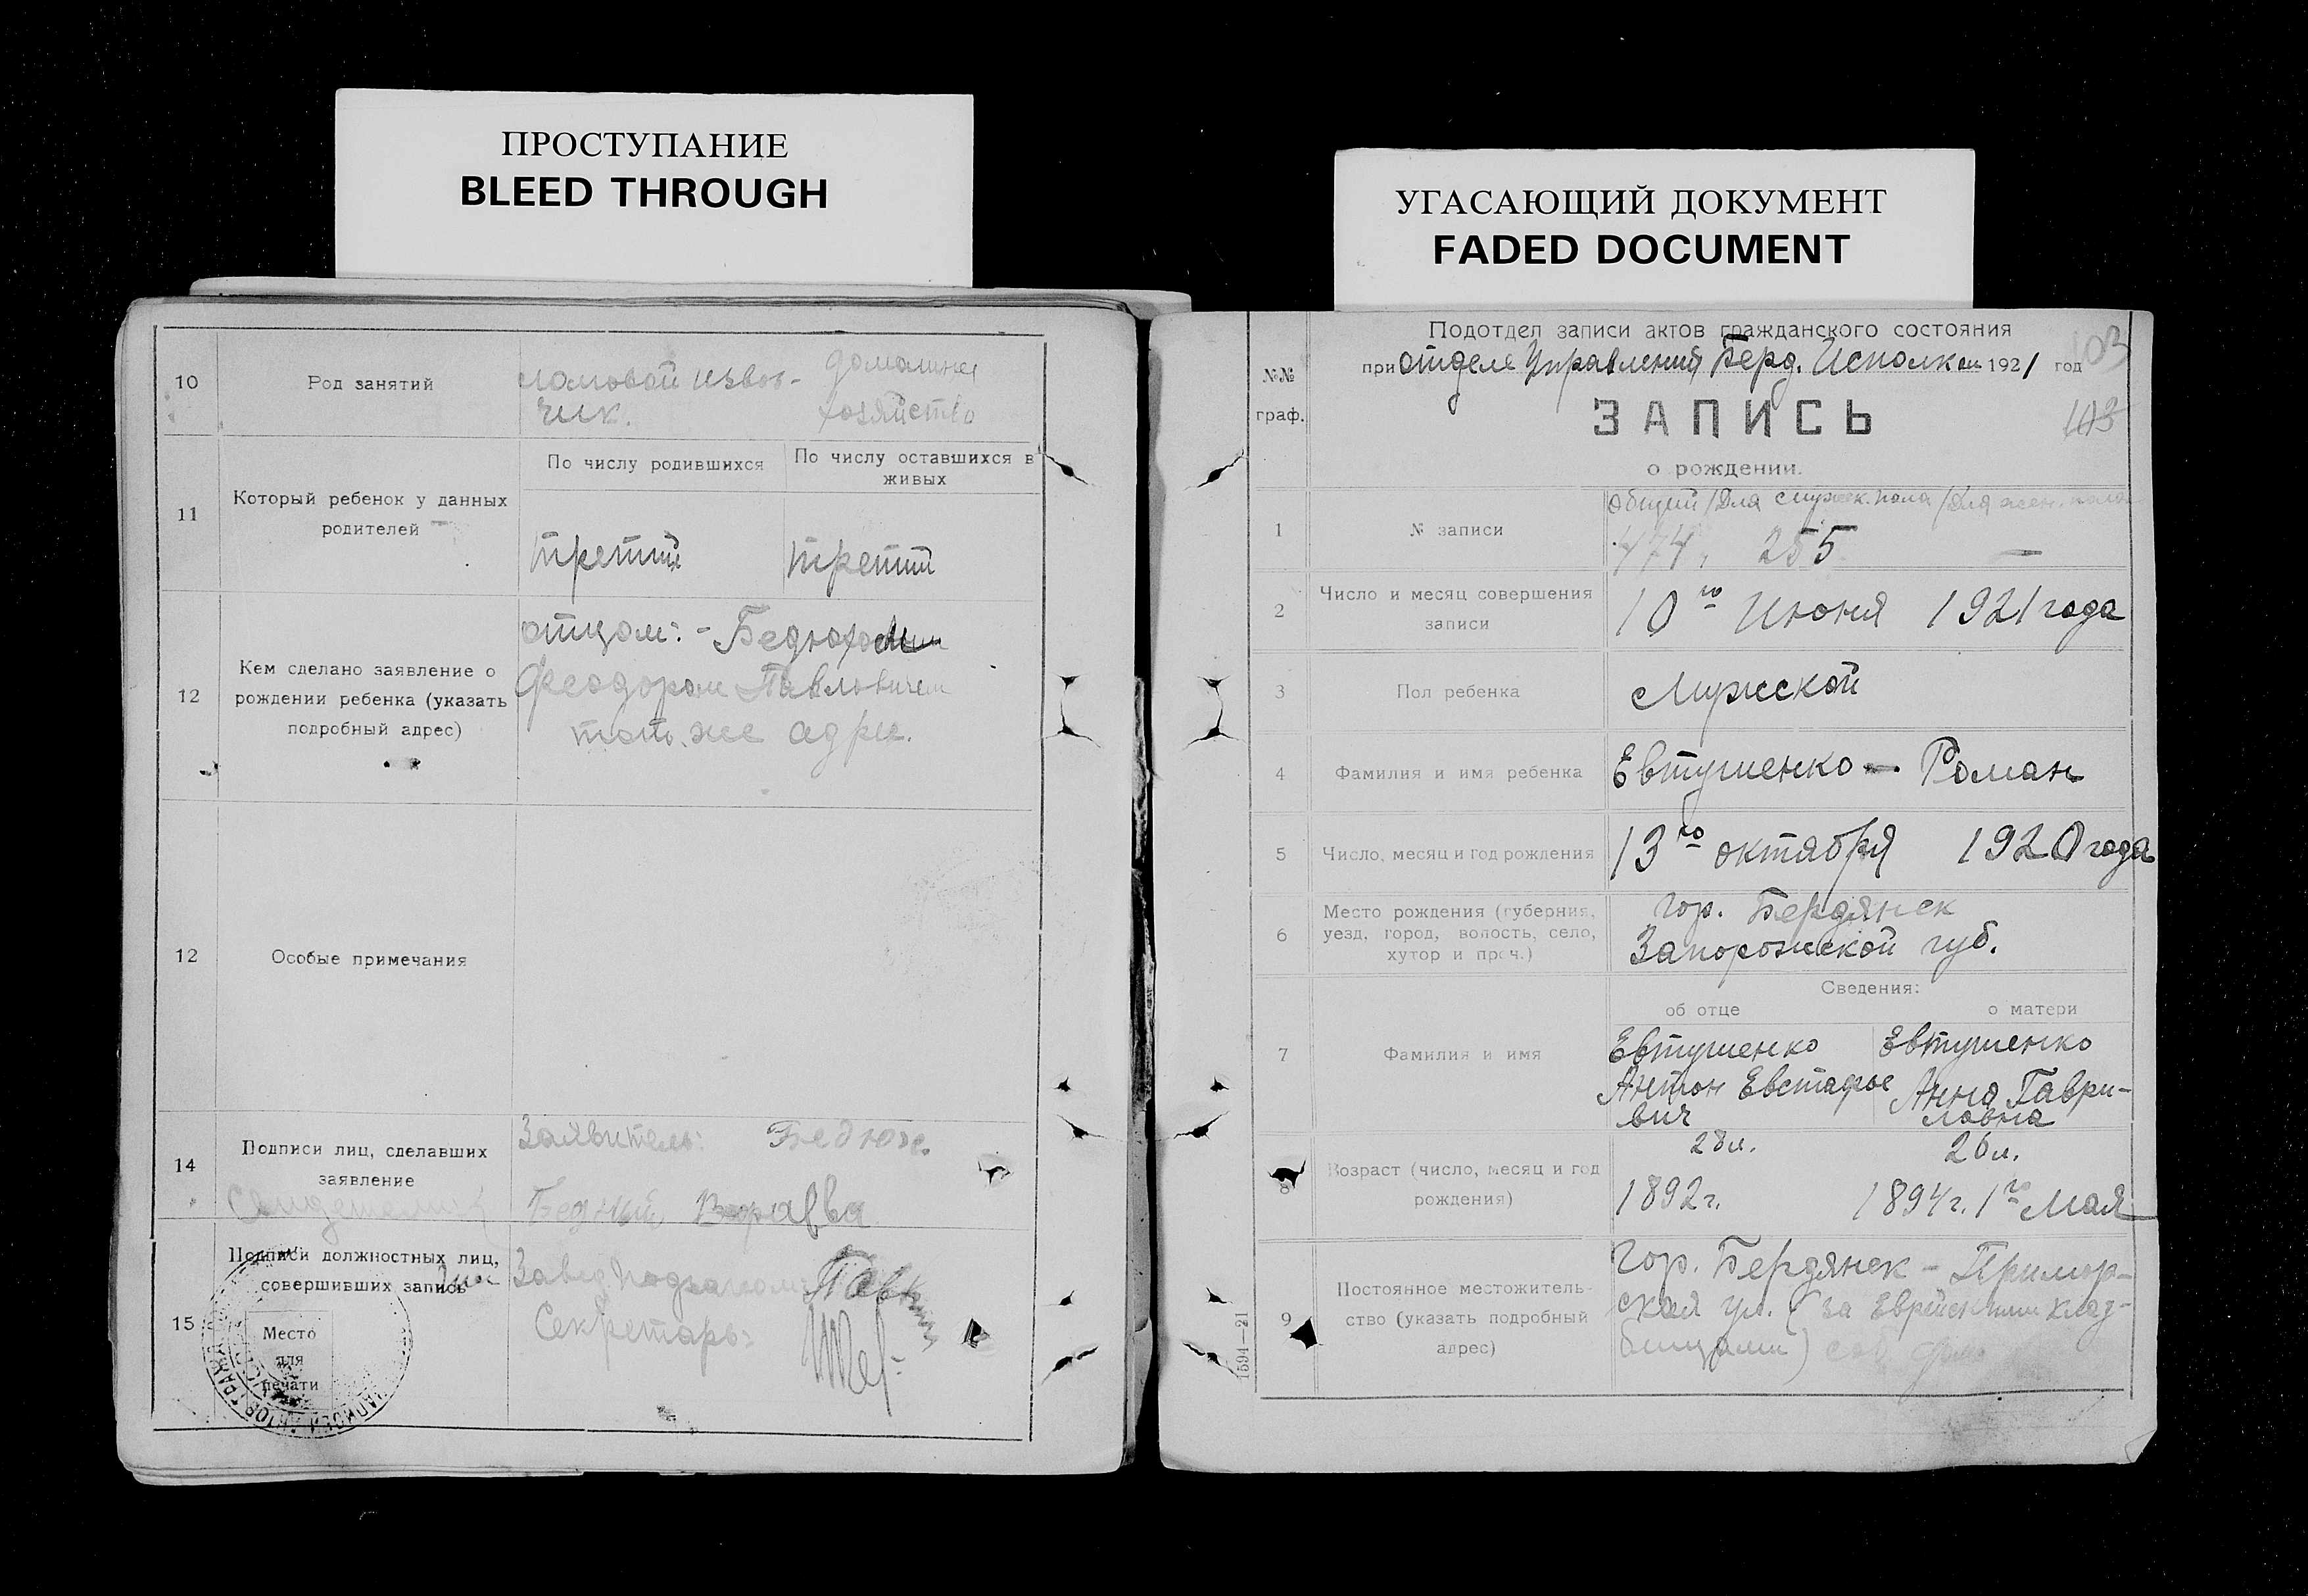 ПРОСТУПАНИЕ
BLEED THROUGH
10
Род занятий
ломовой извоз-
чик.
домашнее
хозяйство
11
Который ребенок у данных
родителей
По числу родившихся
По числу оставшихся в
живых
третий
третий
12
Кем сделано заявление о
рождении ребенка (указать
подробный адрес)
отцом: -
Феодором Павловичем
тот же адрес.
12
Особые примечания
14
Подписи лиц, сделавших
заявление
Заявитель:
15
Подписи должностных лиц,
совершивших запись
Место
для
печати
Секретарь:
УГАСАЮЩИЙ ДОКУМЕНТ
FADED DOCUMENT
№№
граф.
Подотдел записи актов гражданского состояния
при отделе Управления Берд. Исполком 1921 год
103
103
ЗАПИСЬ
о рождении.
1
№ записи
Общий / Для мужск. пола / Для жен. пола
474, 255 —
2
Число и месяц совершения
записи
10го Июня 1921 года
3
Пол ребенка
Мужской
4
Фамилия и имя ребенка
Евтушенко — Роман
5
Число, месяц и год рождения
13го октября 1920 года
6
Место рождения (губерния,
уезд, город, волость, село,
хутор и проч.)
гор. Бердянск
Запорожской губ.
7
Фамилия и имя
Сведения:
об отце
о матери
Евтушенко
Антон Евстафье
вич
Евтушенко
Анна Гаври-
ловна
8
Возраст (число, месяц и год
рождения)
28 л.
1892 г.
26 л.
1894 г. 1го Мая
9
Постоянное местожитель-
ство (указать подробный
адрес)
Гор. Бердянск - Примор-
ская ул. (за Еврейскими клад-
бищами)
1594—21